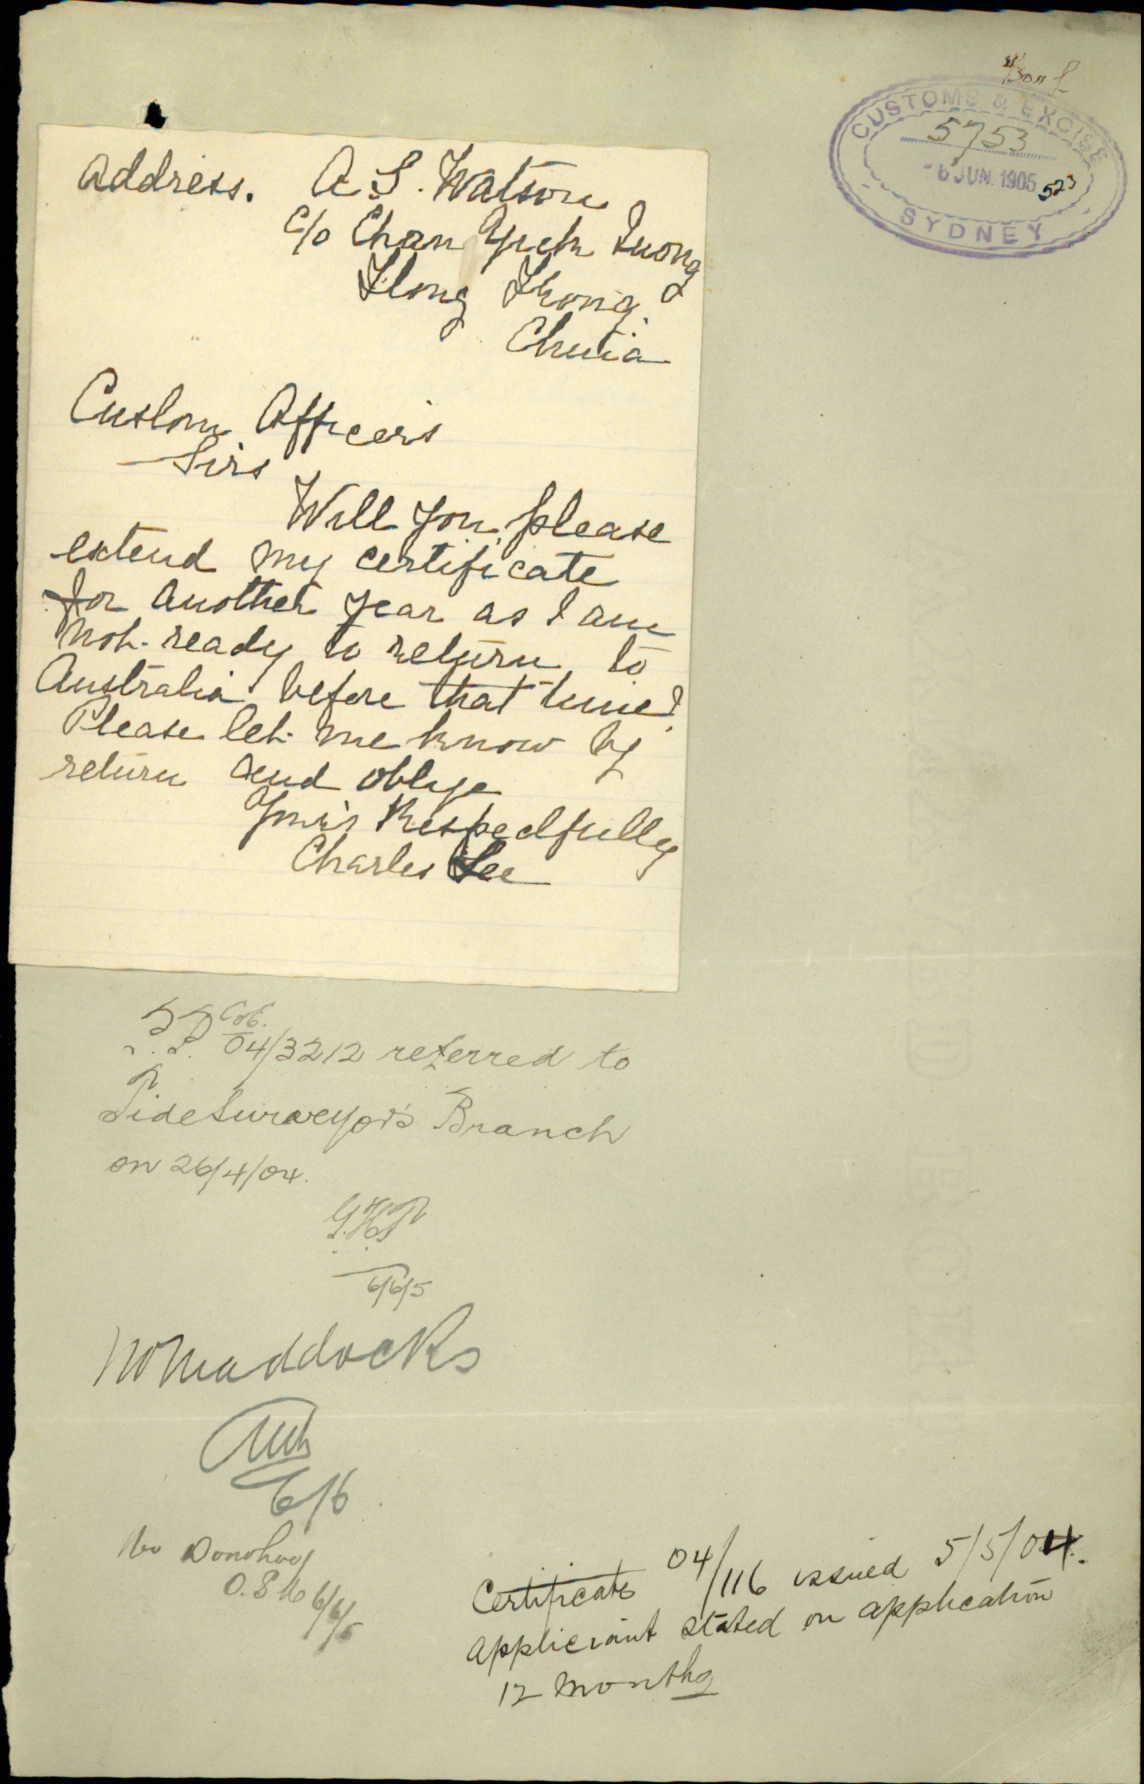 CUSTOMS & EXCISE
5753
-6 JUN. 1905
523
SYDNEY
Address. A S. Watson
C/o Chan Yuck Luong
Hong Khong.
China
Custom Officers
Sirs
Will you please
extend my certificate
for another year as I am
not ready to return to
Australia before that time.
Please let me know by
return and oblige
Yours Respectfully
Charles Lee
04/3212 referred to
Tide Surveyor's Branch
on 26/4/04.
6/6/5
Maddocks
6/6
Mr Donohoe
6/6/5
Certificate 04/116 issued 5/5/04.
applicant stated on application
12 months